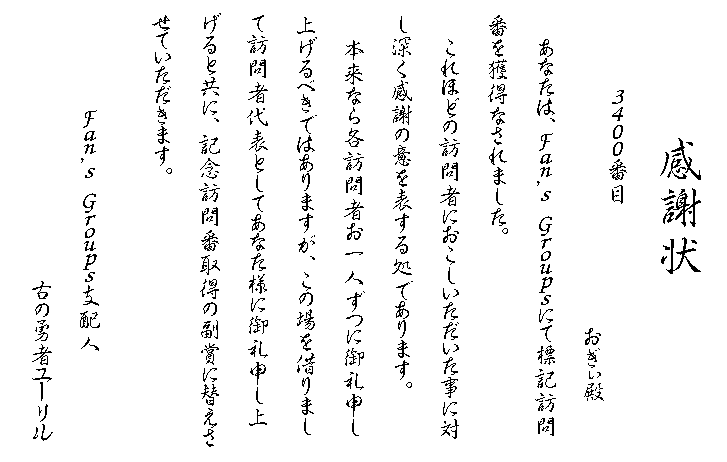 感謝状
3400番目
おぎぃ殿
あなたは、Fan's Groupsにて標記訪問
番を獲得なされました。
これほどの訪問者におこしいただいた事に対
し深く感謝の意を表する処であります。
本来なら各訪問者お一人ずつに御礼申し
上げるべきではありますが、この場を借りまし
て訪問者代表としてあなた様に御礼申し上
げると共に、記念訪問番取得の副賞に替えさ
せていただきます。
Fan's Groups支配人
古の勇者ユーリル